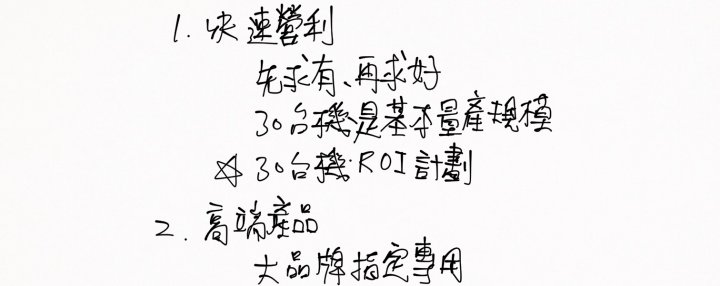 1. 快速營利
先求有、再求好
30台機是基本量產規模
☆ 30台機 ROI 計劃
2. 高端產品
大品牌指定專用